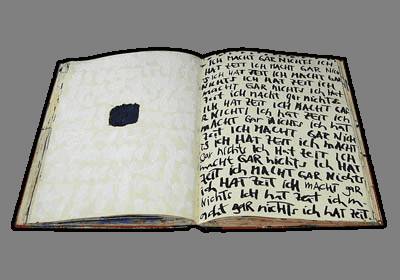 ICH MACHT GAR NICHTS ICH
HAT ZEIT ICH MACHT GAR NICH
TS ICH HAT ZEIT ICH MACHT GAR
NICHTS ICH HAT ZEIT ICH MACHT
GAR NICHTS ICH hat
zeit ich macht gar nichts
ICH HAT ZEIT ICH MACHT GAR
NICHTS ICH HAT ZEIT ICH
MACHT GAR NICHTS ich hat
zeit ICH MACHT GAR NICH
TS ICH HAT ZEIT ich macht
Gar nichts ich Hat zeit ICH
MACHT GAR nichts ICH HAT
ZEIT ICH MACHT GAR NICHTS
ich HAT Zeit ich macht gar
Nichts ich hat zeit ich m
acht gar nichts ich HAT ZEIT